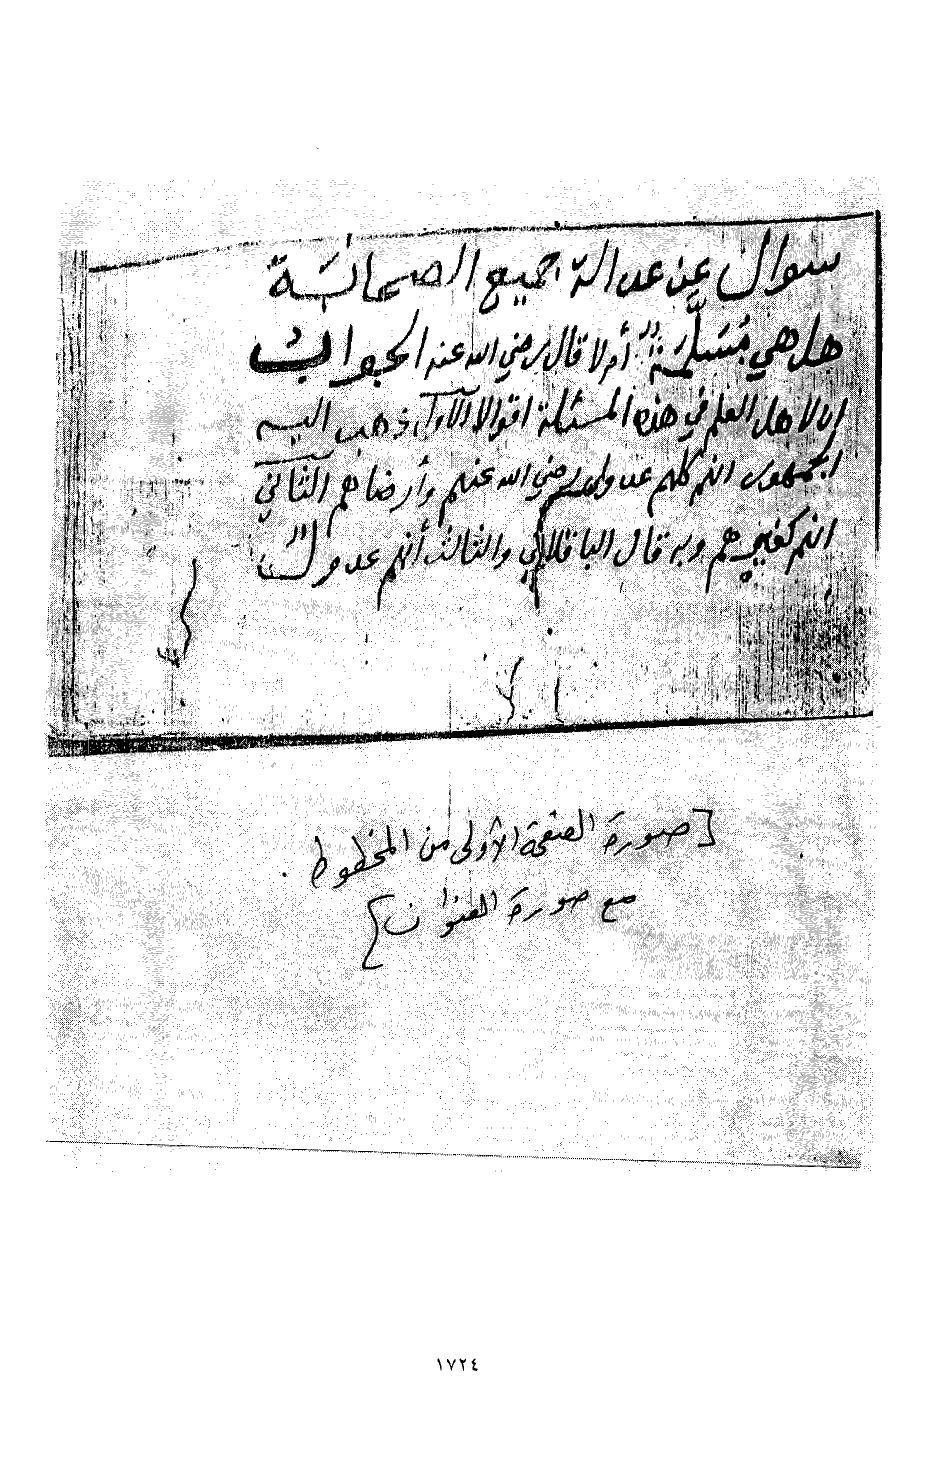 سوال عن عدالة جميع الصحابة
هل هي مُسَلّمَة أم لا قال رضي الله عنه الجواب
ان لاهل العلم في هذه المسئلة اقوالا الاول ذهب اليه
الجمهور انهم كلهم عدول رضي الله عنهم وأرضاهم الثاني
انهم كغيرهم وبه قال الباقلاني والثالث أنهم عدول
[صورة الصفحة الأولى من المخطوط
مع صورة العنوان]
١٧٢٤